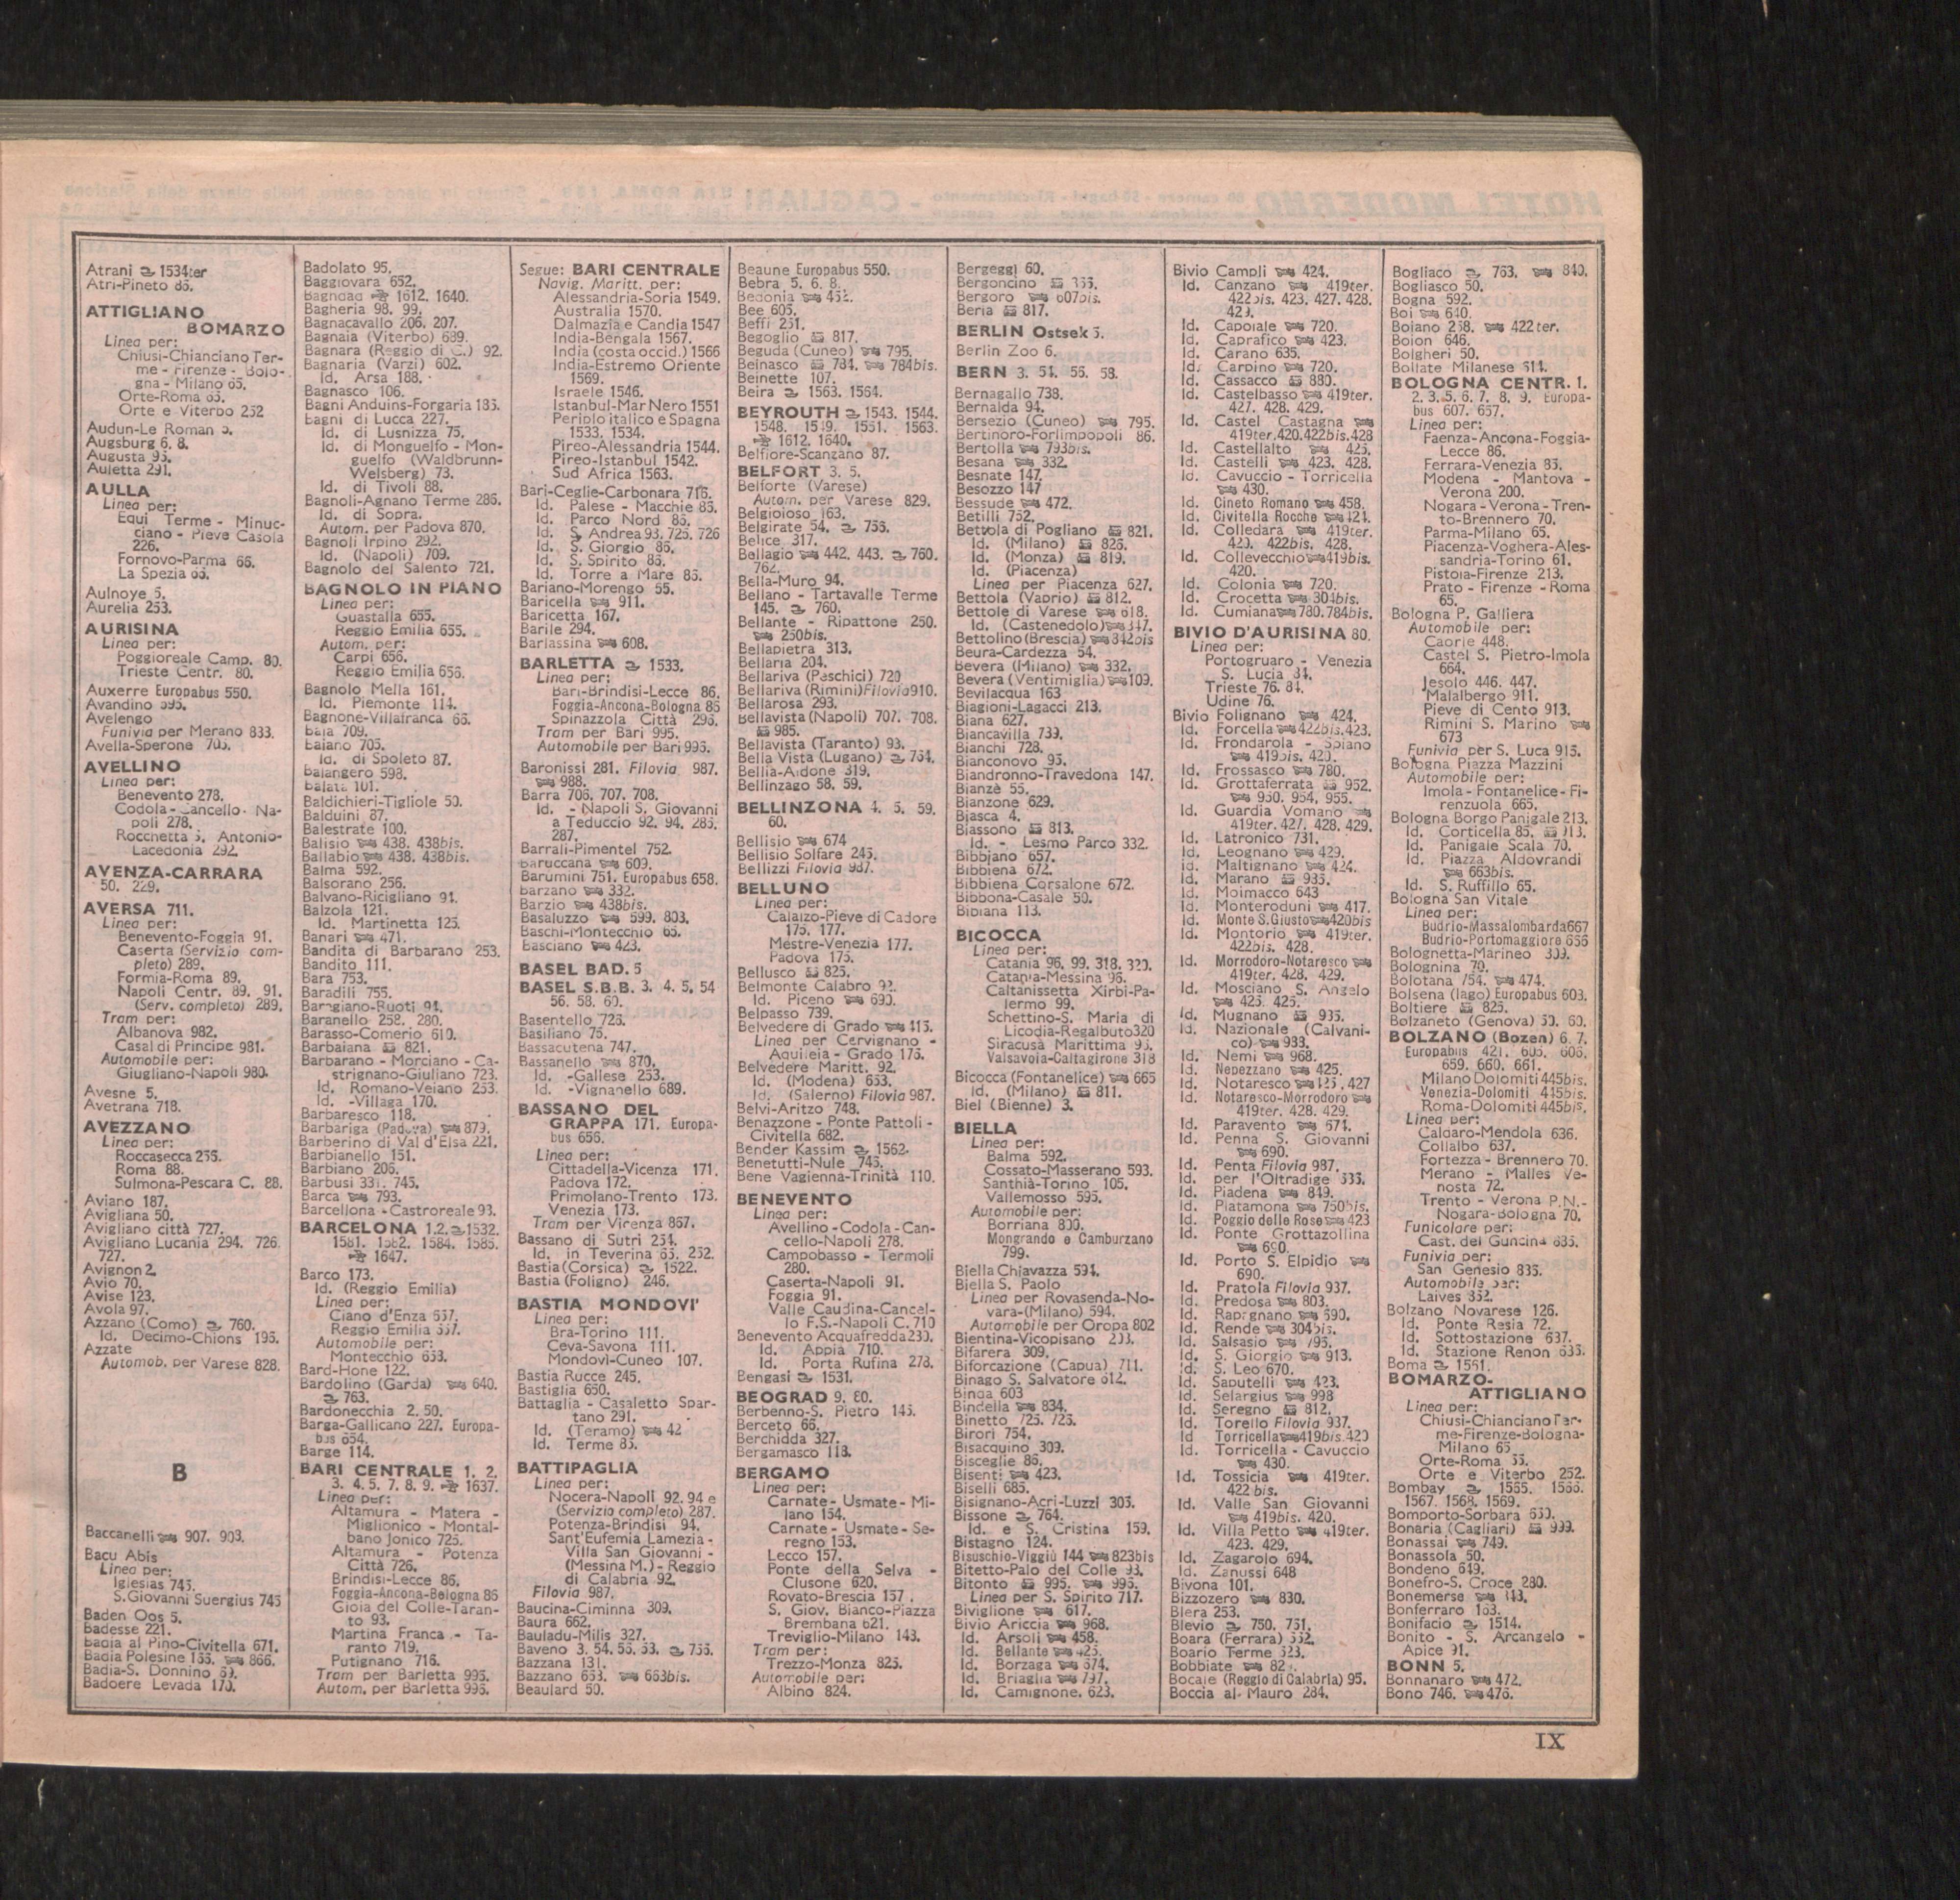 Atrani 1534ter
Atri-Pineto 86.
ATTIGLIANO
BOMARZO
Linea per:
Chiusi-Chianciano Ter-
me - Firenze - Bolo-
gna - Milano 65.
Orte-Roma 65.
Orte e Viterbo 252
Audun-Le Roman 5.
Augsburg 6. 8.
Augusta 95.
Auletta 291.
AULLA
Linea per:
Equi Terme - Minuc-
ciano - Pieve Casola
226.
Fornovo-Parma 66.
La Spezia 66.
Aulnoye 5.
Aurelia 253.
AURISINA
Linea per:
Poggioreale Camp. 80.
Trieste Centr. 80.
Auxerre Europabus 550.
Avandino 695.
Avelengo
Funivia per Merano 833.
Avella-Sperone 705.
AVELLINO
Linea per:
Benevento 278.
Codola-Cancello-Na-
poli 278.
Rocchetta S. Antonio-
Lacedonia 292.
AVENZA-CARRARA
50. 229.
AVERSA 711.
Linea per:
Benevento-Foggia 91.
Caserta (Servizio com-
pleto) 289.
Formia-Roma 89.
Napoli Centr. 89. 91.
(Serv. completo) 289.
Tram per:
Albanova 982.
Casal di Principe 981.
Automobile per:
Giugliano-Napoli 980.
Avesne 5.
Avetrana 718.
AVEZZANO
Linea per:
Roccasecca 256.
Roma 88.
Sulmona-Pescara C. 88.
Aviano 187.
Avigliana 50.
Avigliano città 727.
Avigliano Lucania 294. 726.
727.
Avignon 2.
Avio 70.
Avise 123.
Avola 97.
Azzano (Como) 760.
Id. Decimo-Chions 195.
Azzate
Automob. per Varese 828.
B
Baccanelli 907. 908.
Bacu Abis
Linea per:
Iglesias 745.
S.Giovanni Suergius 745
Baden Oos 5.
Badesse 221.
Badia al Pino-Civitella 671.
Badia Polesine 166. 866.
Badia-S. Donnino 69.
Badoere Levada 170.
Badolato 95.
Baggiovara 652.
Bagdad 1612. 1640.
Bagheria 98. 99.
Bagnacavallo 206. 207.
Bagnaia (Viterbo) 689.
Bagnara (Reggio di C.) 92.
Bagnaria (Varzi) 602.
Id. Arsa 188.
Bagnasco 106.
Bagni Anduins-Forgaria 186.
Bagni di Lucca 227.
Id. di Lusnizza 75.
Id. di Monguelfo - Mon-
guelfo (Waldbrunn-
Welsberg) 73.
Id. di Tivoli 88.
Bagnoli-Agnano Terme 286.
Id. di Sopra.
Autom. per Padova 870.
Bagnoli Irpino 292.
Id. (Napoli) 709.
Bagnolo del Salento 721.
BAGNOLO IN PIANO
Linea per:
Guastalla 655.
Reggio Emilia 655.
Autom. per:
Carpi 656.
Reggio Emilia 656.
Bagnolo Mella 161.
Id. Piemonte 114.
Bagnone-Villafranca 66.
Baia 709.
Baiano 705.
Id. di Spoleto 87.
Balangero 598.
Balata 101.
Baldichieri-Tigliole 50.
Balduini 87.
Balestrate 100.
Balisio 438. 438bis.
Ballabio 438. 438bis.
Balma 592.
Balsorano 256.
Balvano-Ricigliano 94.
Balzola 121.
Id. Martinetta 125.
Banari 471.
Bandita di Barbarano 253.
Bandito 111.
Bara 753.
Baradili 755.
Baragiano-Ruoti 94.
Baranello 258. 280.
Barasso-Comerio 610.
Barbaiana 821.
Barbarano - Morciano - Ca-
strignano-Giuliano 723.
Id. Romano-Veiano 253.
Id. -Villaga 170.
Barbaresco 118.
Barbariga (Padova) 879.
Barberino di Val d'Elsa 221.
Barbianello 151.
Barbiano 206.
Barbusi 331. 745.
Barca 793.
Barcellona - Castroreale 93.
BARCELONA 1.2. 1532.
1581. 1582. 1584. 1585.
1647.
Barco 173.
Id. (Reggio Emilia)
Linea per:
Ciano d'Enza 657.
Reggio Emilia 657.
Automobile per:
Montecchio 653.
Bard-Hone 122.
Bardolino (Garda) 640.
763.
Bardonecchia 2. 50.
Barga-Gallicano 227. Europa-
bus 654.
Barge 114.
BARI CENTRALE 1. 2.
3. 4. 5. 7. 8. 9. 1637.
Linea per:
Altamura - Matera -
Miglionico - Montal-
bano Jonico 725.
Altamura - Potenza
Città 726.
Brindisi-Lecce 86.
Foggia-Ancona-Bologna 86
Gioia del Colle-Taran-
to 93.
Martina Franca - Ta-
ranto 719.
Putignano 716.
Tram per Barletta 995.
Autom. per Barletta 996.
Segue: BARI CENTRALE
Navig. Maritt. per:
Alessandria-Soria 1549.
Australia 1570.
Dalmazia e Candia 1547
India-Bengala 1567.
India (costa occid.) 1566
India-Estremo Oriente
1569.
Israele 1546.
Istanbul-Mar Nero 1551
Periplo italico e Spagna
1533. 1534.
Pireo-Alessandria 1544.
Pireo-Istanbul 1542.
Sud Africa 1563.
Bari-Ceglie-Carbonara 716.
Id. Palese - Macchie 86.
Id. Parco Nord 86.
Id. S. Andrea 93. 725. 726
Id. S. Giorgio 86.
Id. S. Spirito 86.
Id. Torre a Mare 86.
Bariano-Morengo 55.
Baricella 911.
Baricetta 167.
Barile 294.
Barlassina 608.
BARLETTA 1533.
Linea per:
Bari-Brindisi-Lecce 86.
Foggia-Ancona-Bologna 86
Spinazzola Città 296.
Tram per Bari 995.
Automobile per Bari 996.
Baronissi 281. Filovia 987.
988.
Barra 706. 707. 708.
Id. - Napoli S. Giovanni
a Teduccio 92. 94. 286.
287.
Barrali-Pimentel 752.
Baruccana 609.
Barumini 751. Europabus 658.
Barzano 332.
Barzio 438bis.
Basaluzzo 599. 803.
Baschi-Montecchio 65.
Basciano 423.
BASEL BAD. 5
BASEL S.B.B. 3. 4. 5. 54
56. 58. 60.
Basentello 725.
Basiliano 76.
Bassacutena 747.
Bassanello 870.
Id. -Gallese 253.
Id. -Vignanello 689.
BASSANO DEL
GRAPPA 171. Europa-
bus 656.
Linea per:
Cittadella-Vicenza 171.
Padova 172.
Primolano-Trento 173.
Venezia 173.
Tram per Vicenza 867.
Bassano di Sutri 254.
Id. in Teverina 65. 252.
Bastia (Corsica) 1522.
Bastia (Foligno) 246.
BASTIA MONDOVI'
Linea per:
Bra-Torino 111.
Ceva-Savona 111.
Mondovì-Cuneo 107.
Bastia Rucce 245.
Bastiglia 650.
Battaglia - Casaletto Spar-
tano 291.
Id. (Teramo) 42
Id. Terme 85.
BATTIPAGLIA
Linea per:
Nocera-Napoli 92. 94 e
(Servizio completo) 287.
Potenza-Brindisi 94.
Sant'Eufemia Lamezia -
Villa San Giovanni -
(Messina M.) - Reggio
di Calabria 92.
Filovia 987.
Baucina-Ciminna 309.
Baura 662.
Bauladu-Milis 327.
Baveno 3. 54. 56. 58. 756.
Bazzana 131.
Bazzano 653. 663bis.
Beaulard 50.
Beaune Europabus 550.
Bebra 5. 6. 8.
Bedonia 452.
Bee 605.
Beffi 251.
Begoglio 817.
Beguda (Cuneo) 795.
Beinasco 784. 784bis.
Beinette 107.
Beira 1563. 1564.
BEYROUTH 1543. 1544.
1548. 1549. 1551. 1563.
1612. 1640.
Belfiore-Scanzano 87.
BELFORT 3. 5.
Belforte (Varese)
Autom. per Varese 829.
Belgioioso 163.
Belgirate 54. 756.
Belice 317.
Bellagio 442. 443. 760.
762.
Bella-Muro 94.
Bellano - Tartavalle Terme
145. 760.
Bellante - Ripattone 250.
250bis.
Bellapietra 313.
Bellaria 204.
Bellariva (Peschici) 720
Bellariva (Rimini) Filovia 910.
Bellarosa 293.
Bellavista (Napoli) 707. 708.
985.
Bellavista (Taranto) 93.
Bella Vista (Lugano) 764.
Bellia-Aidone 319.
Bellinzago 58. 59.
BELLINZONA 4. 5. 59.
60.
Bellisio 674
Bellisio Solfare 245.
Bellizzi Filovia 987.
BELLUNO
Linea per:
Calalzo-Pieve di Cadore
175. 177.
Mestre-Venezia 177.
Padova 175.
Bellusco 825.
Belmonte Calabro 92.
Id. Piceno 690.
Belpasso 739.
Belvedere di Grado 415.
Linea per Cervignano -
Aquileia - Grado 176.
Belvedere Maritt. 92.
Id. (Modena) 653.
Id. (Salerno) Filovia 987.
Belvi-Aritzo 748.
Benazzone - Ponte Pattoli -
Civitella 682.
Bender Kassim 1562.
Benetutti-Nule 746.
Bene Vagienna-Trinità 110.
BENEVENTO
Linea per:
Avellino - Codola - Can-
cello-Napoli 278.
Campobasso - Termoli
280.
Caserta-Napoli 91.
Foggia 91.
Valle Caudina-Cancel-
lo F.S.-Napoli C. 710
Benevento Acquafredda 280.
Id. Appia 710.
Id. Porta Rufina 278.
Bengasi 1531.
BEOGRAD 9. 80.
Berbenno-S. Pietro 146.
Berceto 66.
Berchidda 327.
Bergamasco 118.
BERGAMO
Linea per:
Carnate - Usmate - Mi-
lano 154.
Carnate - Usmate - Se-
regno 153.
Lecco 157.
Ponte della Selva -
Clusone 620.
Rovato-Brescia 157.
S. Giov. Bianco-Piazza
Brembana 621.
Treviglio-Milano 143.
Tram per:
Trezzo-Monza 825.
Automobile per:
Albino 824.
Bergeggi 60.
Bergoncino 336.
Bergoro 607bis.
Beria 817.
BERLIN Ostsek 5.
Berlin Zoo 6.
BERN 3. 54. 56. 58.
Bernagallo 738.
Bernalda 94.
Bersezio (Cuneo) 795.
Bertinoro-Forlimpopoli 86.
Bertolla 793bis.
Besana 332.
Besnate 147.
Besozzo 147
Bessude 472.
Betilli 752.
Bettola di Pogliano 821.
Id. (Milano) 826.
Id. (Monza) 819.
Id. (Piacenza)
Linea per Piacenza 627.
Bettola (Vaprio) 812.
Bettole di Varese 618.
Id. (Castenedolo) 347.
Bettolino (Brescia) 842bis
Beura-Cardezza 54.
Bevera (Milano) 332.
Bevera (Ventimiglia) 109.
Bevilacqua 163
Biagioni-Lagacci 213.
Biana 627.
Biancavilla 739.
Bianchi 728.
Bianconovo 95.
Biandronno-Travedona 147.
Bianzè 55.
Bianzone 629.
Biasca 4.
Biassono 813.
Id. - Lesmo Parco 332.
Bibbiano 657.
Bibbiena 672.
Bibbiena Corsalone 672.
Bibbona-Casale 50.
Bibiana 113.
BICOCCA
Linea per:
Catania 96. 99. 318. 320.
Catania-Messina 96.
Caltanissetta Xirbi-Pa-
lermo 99.
Schettino-S. Maria di
Licodia-Regalbuto 320
Siracusa Marittima 96.
Valsavoia-Caltagirone 318
Bicocca (Fontanelice) 665
Id. (Milano) 811.
Biel (Bienne) 3.
BIELLA
Linea per:
Balma 592.
Cossato-Masserano 593.
Santhià-Torino 105.
Vallemosso 595.
Automobile per:
Borriana 800.
Mongrando e Camburzano
799.
Biella Chiavazza 594.
Biella S. Paolo
Linea per Rovasenda-No-
vara-(Milano) 594.
Automobile per Oropa 802
Bientina-Vicopisano 233.
Bifarera 309.
Biforcazione (Capua) 711.
Binago S. Salvatore 612.
Binda 603
Bindella 834.
Binetto 725. 726.
Birori 754.
Bisacquino 309.
Bisceglie 86.
Bisenti 423.
Biselli 685.
Bisignano-Acri-Luzzi 305.
Bissone 764.
Id. e S. Cristina 159.
Bistagno 124.
Bisuschio-Viggiù 144 823bis
Bitetto-Palo del Colle 93.
Bitonto 995. 996.
Linea per S. Spirito 717.
Biviglione 617.
Bivio Ariccia 968.
Id. Arsoli 458.
Id. Bellante 425.
Id. Borzaga 674.
Id. Briaglia 797.
Id. Camignone. 623.
Bivio Campli 424.
Id. Canzano 419ter.
422bis. 423. 427. 428.
429.
Id. Capoiale 720.
Id. Caprafico 423.
Id. Carano 635.
Id. Carpino 720.
Id. Cassacco 880.
Id. Castelbasso 419ter.
427. 428. 429.
Id. Castel Castagna
419ter.420.422bis.428
Id. Castellalto 425.
Id. Castelli 423. 428.
Id. Cavuccio - Torricella
430.
Id. Cineto Romano 458.
Id. Civitella Rocche 424.
Id. Colledara 419ter.
420. 422bis. 428.
Id. Collevecchio 419bis.
420.
Id. Colonia 720.
Id. Crocetta 304bis.
Id. Cumiana 780.784bis.
BIVIO D'AURISINA 80.
Linea per:
Portogruaro - Venezia
S. Lucia 84.
Trieste 76. 84.
Udine 76.
Bivio Folignano 424.
Id. Forcella 422bis.423.
Id. Frondarola - Spiano
419bis. 420.
Id. Frossasco 780.
Id. Grottaferrata 952.
950. 954. 955.
Id. Guardia Vomano
419ter. 427. 428. 429.
Id. Latronico 731.
Id. Leognano 429.
Id. Maltignano 424.
Id. Marano 935.
Id. Moimacco 643
Id. Monteroduni 417.
Id. Monte S.Giusto 420bis
Id. Montorio 419ter.
422bis. 428.
Id. Morrodoro-Notaresco
419ter. 428. 429.
Id. Mosciano S. Angelo
425. 426.
Id. Mugnano 935.
Id. Nazionale (Calvani-
co) 933.
Id. Nemi 968.
Id. Nepezzano 425.
Id. Notaresco 425. 427
Id. Notaresco-Morrodoro
419ter. 428. 429.
Id. Paravento 674.
Id. Penna S. Giovanni
690.
Id. Penta Filovia 987.
Id. per l'Oltradige 635.
Id. Piadena 849.
Id. Platamona 750bis.
Id. Poggio delle Rose 423
Id. Ponte Grottazzolina
690.
Id. Porto S. Elpidio
690.
Id. Pratola Filovia 937.
Id. Predosa 803.
Id. Rapagnano 690.
Id. Rende 304bis.
Id. Salsasio 795.
Id. S. Giorgio 913.
Id. S. Leo 670.
Id. Saputelli 423.
Id. Selargius 998
Id. Seregno 812.
Id Torello Filovia 937.
Id Torricella 419bis.420
Id. Torricella - Cavuccio
430.
Id. Tossicia 419ter.
422 bis.
Id. Valle San Giovanni
419bis. 420.
Id. Villa Petto 419ter.
423. 429.
Id. Zagarolo 694.
Id. Zanussi 648
Bivona 101.
Bizzozero 830.
Blera 253.
Blevio 750. 761.
Boara (Ferrara) 662.
Boario Terme 623.
Bobbiate
Bocale (Reggio di Calabria) 95.
Boccia al Mauro 284.
Bogliaco 763. 840.
Bogliasco 50.
Bogna 592.
Boi 640.
Boiano 258. 422ter.
Boion 646.
Bolgheri 50.
Bollate Milanese 614.
BOLOGNA CENTR. 1.
2. 3. 5. 6. 7. 8. 9. Europa-
bus 607. 657.
Linea per:
Faenza-Ancona-Foggia-
Lecce 86.
Ferrara-Venezia 85.
Modena - Mantova -
Verona 200.
Nogara - Verona - Tren-
to-Brennero 70.
Parma-Milano 65.
Piacenza-Voghera-Ales-
sandria-Torino 61.
Pistoia-Firenze 213.
Prato - Firenze - Roma
65.
Bologna P. Galliera
Automobile per:
Caorle 448.
Castel S. Pietro-Imola
664.
Jesolo 446. 447.
Malalbergo 911.
Pieve di Cento 913.
Rimini S. Marino
673
Funivia per S. Luca 915.
Bologna Piazza Mazzini
Automobile per:
Imola - Fontanelice - Fi-
renzuola 665.
Bologna Borgo Panigale 213.
Id. Corticella 85. 913.
Id. Panigale Scala 70.
Id. Piazza Aldovrandi
663bis.
Id. S. Ruffillo 65.
Bologna San Vitale
Linea per:
Budrio-Massalombarda 667
Budrio-Portomaggiore 666
Bolognetta-Marineo 309.
Bolognina 70.
Bolotana 754. 474.
Bolsena (lago) Europabus 603.
Boltiere 825.
Bolzaneto (Genova) 50. 60.
BOLZANO (Bozen) 6. 7.
Europabus 421. 605. 606.
659. 660. 661.
Milano Dolomiti 445bis.
Venezia-Dolomiti 445bis.
Roma-Dolomiti 445bis.
Linea per:
Caldaro-Mendola 636.
Collalbo 637.
Fortezza - Brennero 70.
Merano - Malles Ve-
nosta 72.
Trento - Verona P.N.-
Nogara-Bologna 70.
Funicolare per:
Cast. del Guncina 835.
Funivia per:
San Genesio 836.
Automobile per:
Laives 852.
Bolzano Novarese 126.
Id. Ponte Resia 72.
Id. Sottostazione 637.
Id. Stazione Renon 635.
Boma 1561.
BOMARZO-
ATTIGLIANO
Linea per:
Chiusi-Chianciano Ter-
me-Firenze-Bologna-
Milano 65
Orte-Roma 65.
Orte e Viterbo 252.
Bombay 1565. 1566.
1567. 1568. 1569.
Bomporto-Sorbara 650.
Bonaria (Cagliari) 999.
Bonassai 749.
Bonassola 50.
Bondeno 649.
Bonefro-S. Croce 280.
Bonemerse 443.
Bonferraro 163.
Bonifacio 1514.
Bonito - S. Arcangelo -
Apice 91.
BONN 5.
Bonnanaro 472.
Bono 746. 476.
IX